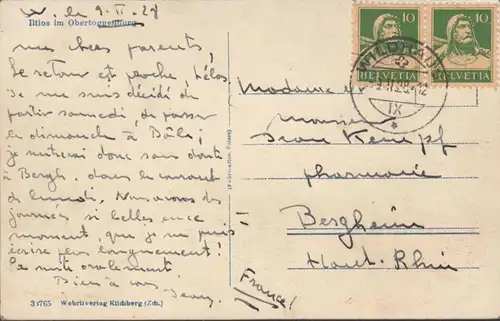 W. le 9. II. 28
Iltios im Obertoggenburg
mes chers parents,
Le retour est proche, hélas.
Je me suis décidé de
partir samedi, de passer
le dimanche à Bâle;
je rentrerai donc sans doute
à Bergh. dans le courant
de lundi. Nous avons des
journées si belles en ce
moment, que je ne puis
écrire plus longuement!
Je
Bien à vous
Jean
33765 Wehrliverlag Kilchberg (Zch.)
HELVETIA 10
HELVETIA 10
WILDHAUS
IX
Madame et
Monsieur
Jean Kempf
pharmacie
Bergheim
Haut-Rhin
(France!)